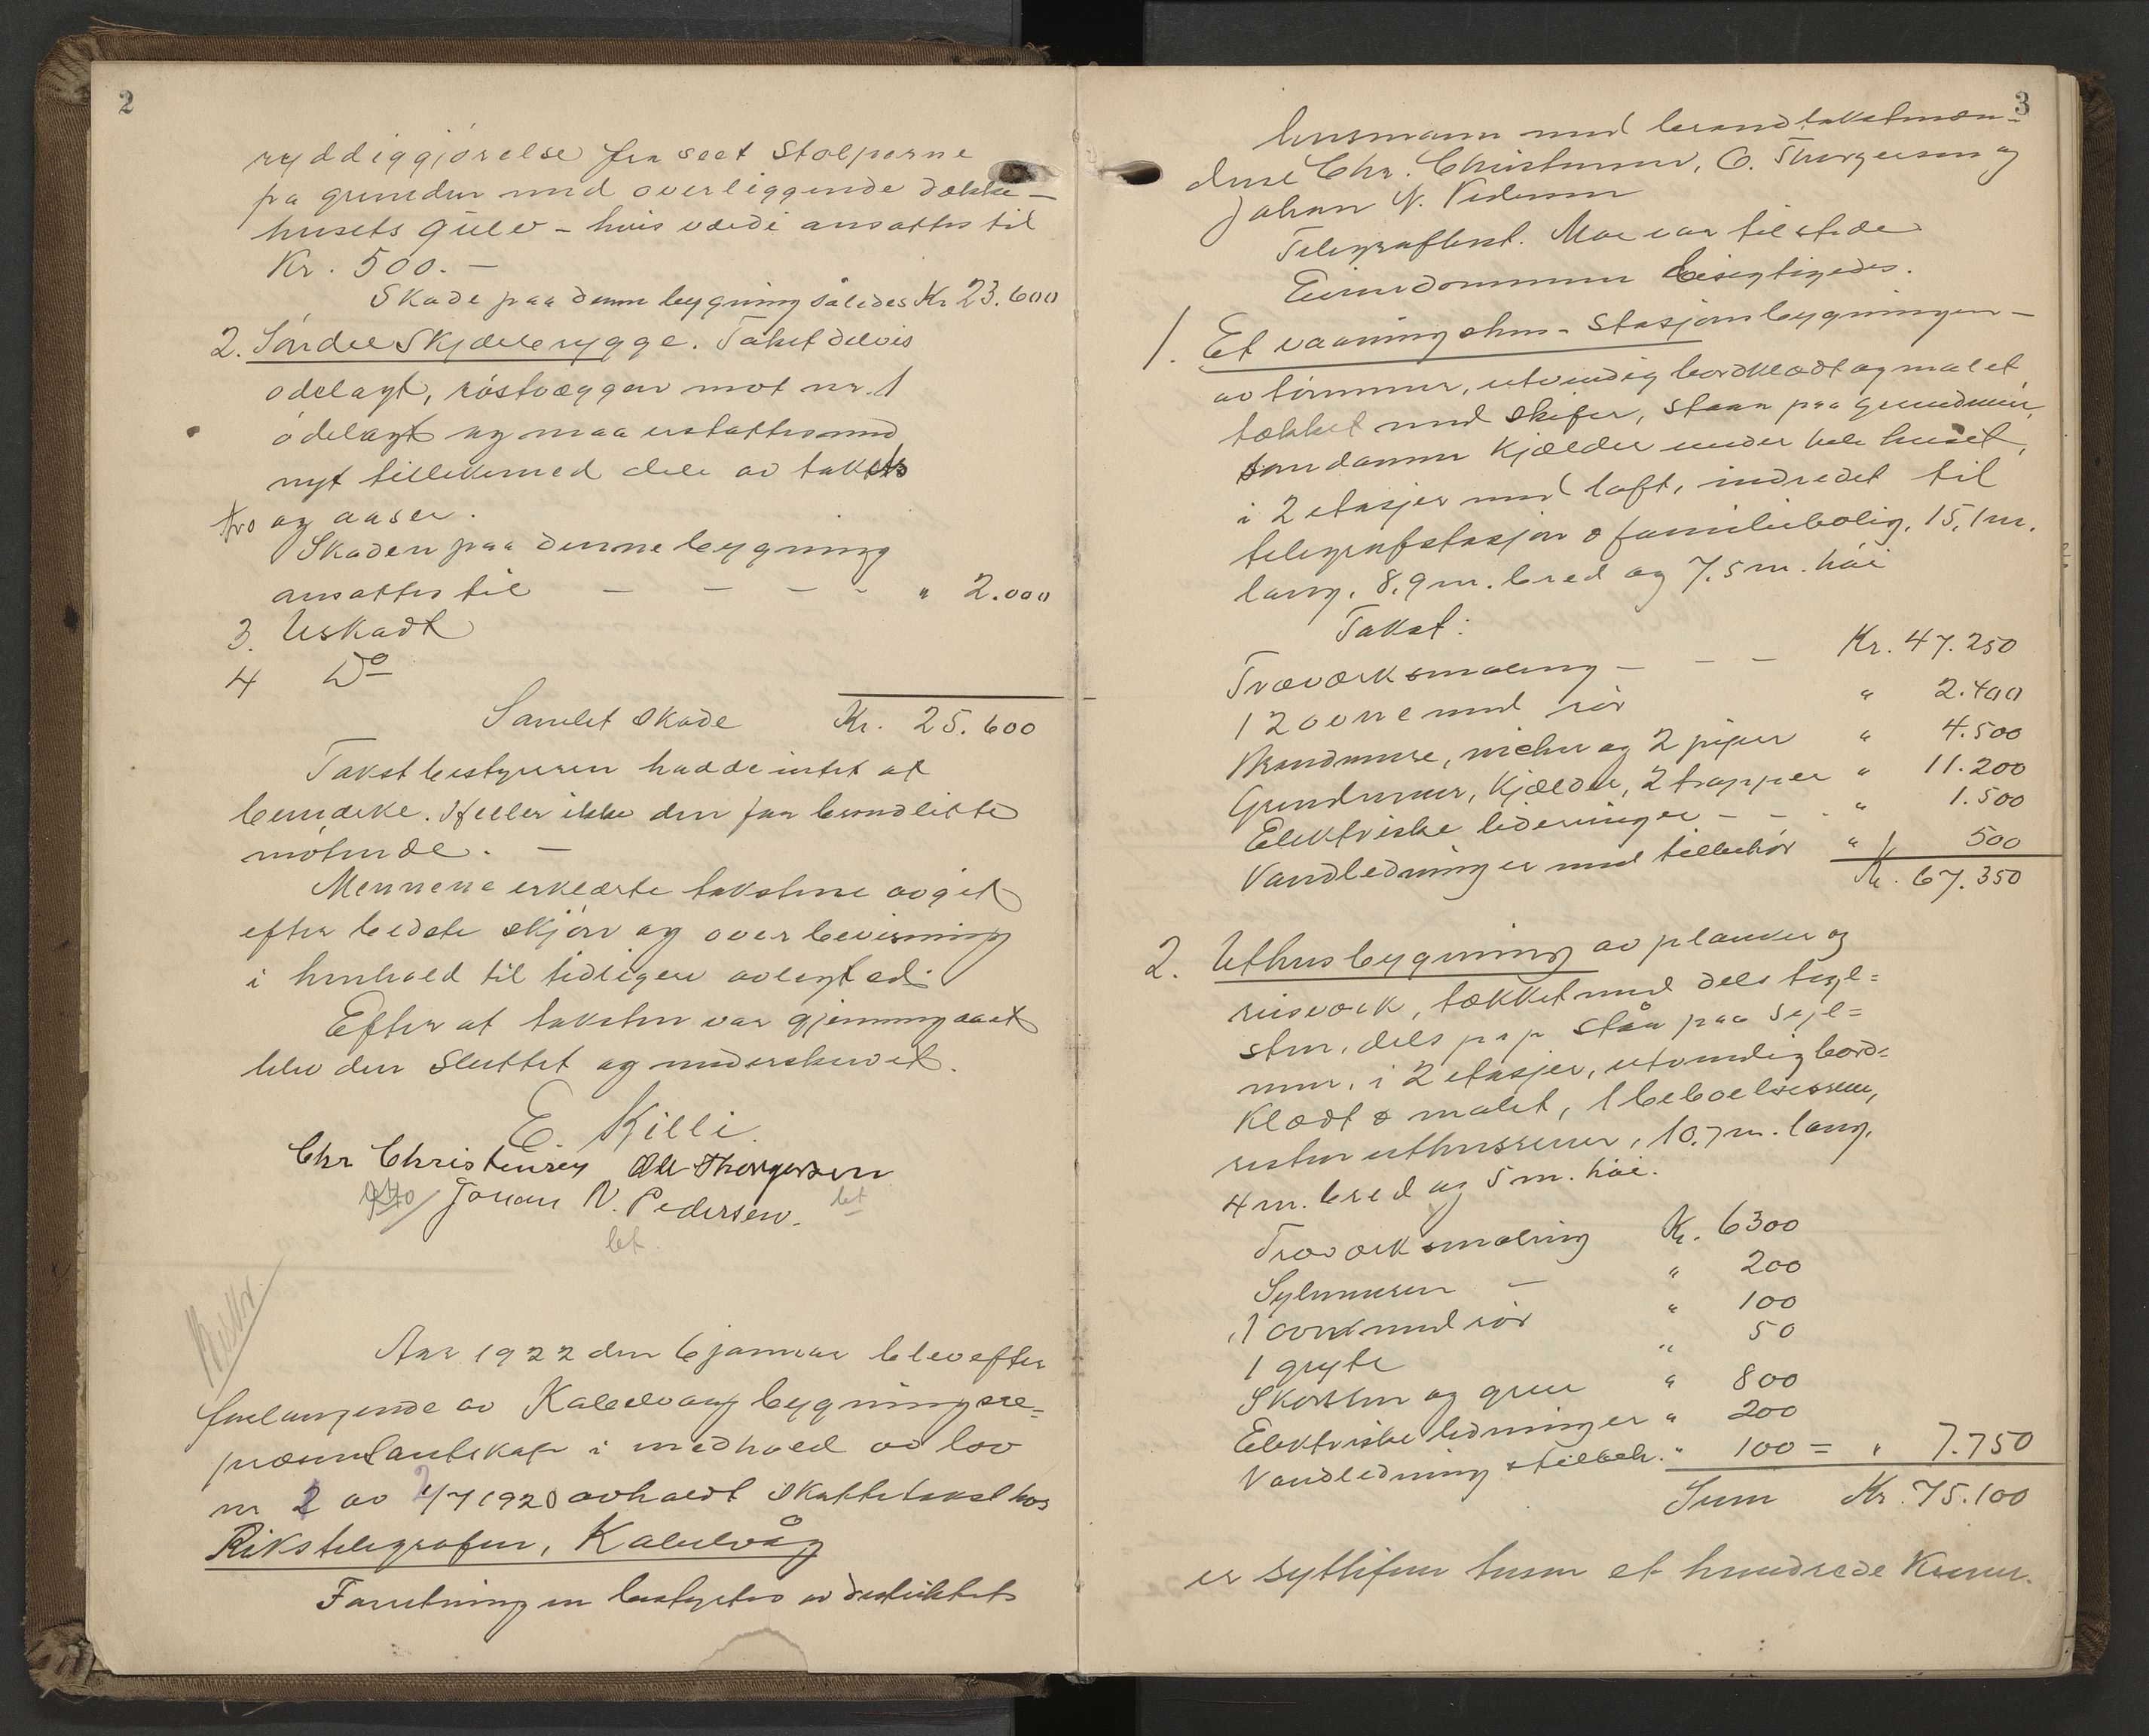 2
ryddiggjörelse fraseet Stolperne
pa grunden med overliggende dække-
husets gulv - hvis værdi ansattes til
Kr. 500. -
Skade paa denne bygning således Kr 23.600
2. Söndre Skjælbrygge. Taket delvis
ödelagt, röstvæggen mot nr. 1
ödelagt og maa erstattes med
nyt tillikemed dele av takets
tro og aaser.
Skaden paa denne bygning
ansattes til - - - - " 2.000
3. Uskadt
4 Do
Samlet skade Kr. 25.600
Takstbestyreren hadde intet at
bemerke. Heller ikke den for brandlidte
mötende. -
Mennene erklærte taksterne avgit
efter bedste skjön og overbevisning
i henhold til tidligere avlagt ed.
Efter at taksten var gjennemgaaet
blev den sluttet og underskrevet.
E. Killi.
Chr Christensen Ole Thorgersen
Johan N. Pedersen. bet
bet
Aar 1922 den 6 januar blev efter
forlangende av Kalvåg bygningsre-
præsentantskap i medhold av lov
nr 2 av 2/7 1920 avholdt skattetakst hos
Rikstelegrafen, Kalvåg
Forretningen bestyrtes av distriktets
3
lensmann med brandtakstmæn-
dene Chr. Christensen, O. Thorgersen og
Johan N. Pedersen
Telegrafbest. Moe var tilstede
Eiendommen besigtigedes.
1. Et vaaningshus - Stasjonsbygningen -
av tömmer, utvendig bordklædt og malet,
tækket med skifer, staar paa grundmur,
som danner kjælder under hele huset,
i 2 etasjer med loft, indredet til
telegrafstasjon & familiebolig, 15,1 m.
lang, 8,9 m. bred og 7,5 m. höi
Takst:
Træværk & maling - - - Kr. 47.250
12 ovne med rör " 2.400
Brandmure, nicher og 2 piper " 4.500
Grundmur, kjælder, 2 trapper " 11.200
Elektriske ledninger - - . " 1.500
Vandledninger med tilbehör " 500
Kr. 67.350
2. Uthusbygning av planker og
reisverk, tækket med dels tegl=
sten, dels pap står paa syl=
mur, i 2 etasjer, utvendig bord=
klædt & malet, 1 beboelsesrum,
resten uthusrum, 10,7 m. lang,
4 m. bred og 5 m. höi.
Træværk & maling Kr. 6300
Sylmuren - " 200
1 ovn med rör " 100
1 gryte " 50
Skorsten og grue " 800
Elektriske ledninger " 200
Vandledning & tilbeh. " 100 = " 7.750
Sum Kr. 75.100
er syttifem tusen et hundrede Kroner.